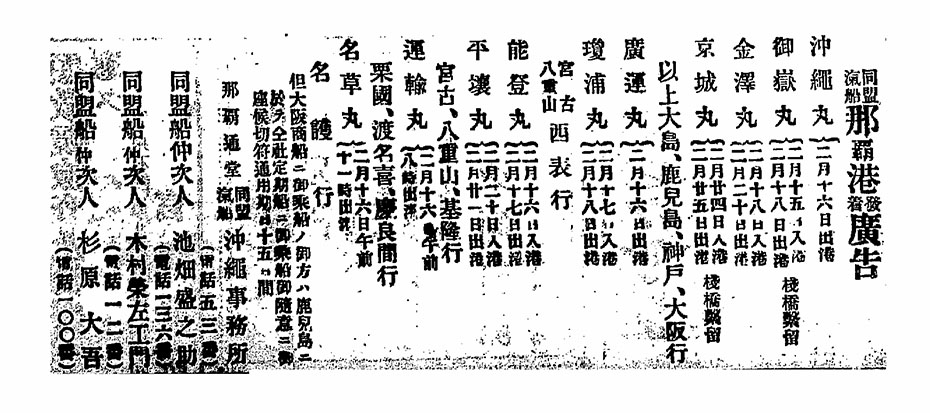 同盟汽船 那覇港発着廣告
沖繩丸 二月十六日出港
御嶽丸 二月十五日入港 二月十八日出港 棧橋繫留
金澤丸 二月十八日入港 二月二十日出港
京城丸 二月廿四日入港 二月廿五日出港 棧橋繫留
以上大島、鹿兒島、神戸、大阪行
廣運丸 二月十六日出港
瓊浦丸 二月十七日入港 二月十八日出港
宮古八重山西表行
能登丸 二月十六日入港 二月十七日出港
平壤丸 二月二十日入港 二月廿一日出港
宮古、八重山、基隆行
運輸丸 二月十六日午前八時出港
粟國、渡名喜、慶良間行
名草丸 二月十六日午前十一時出港
名護行
但大阪商船ニ御乘船ノ御方ハ鹿兒島ニ
於テ仝社定期船ニ御乘船御隨意ニ御
座候切符通用期日十五日間
那覇通堂 同盟汽船 沖繩事務所
(電話五三番)
同盟船仲次人 池畑盛之助
(電話一三六番)
同盟船仲次人 木村榮左工門
(電話一二番)
同盟船仲次人 杉原大吾
(電話一〇〇番)